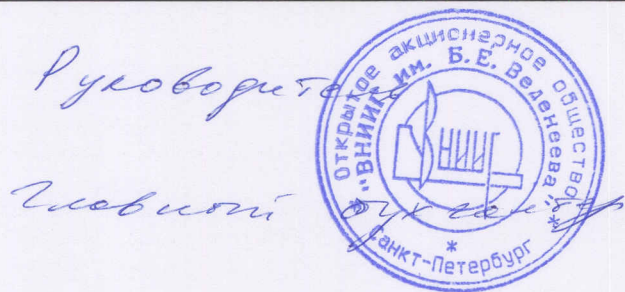 Руководитель
Главный бухгалтер
Открытое акционерное общество
"ВНИИГ им. Б.Е. Веденеева"
ВНИИГ
* Санкт-Петербург *